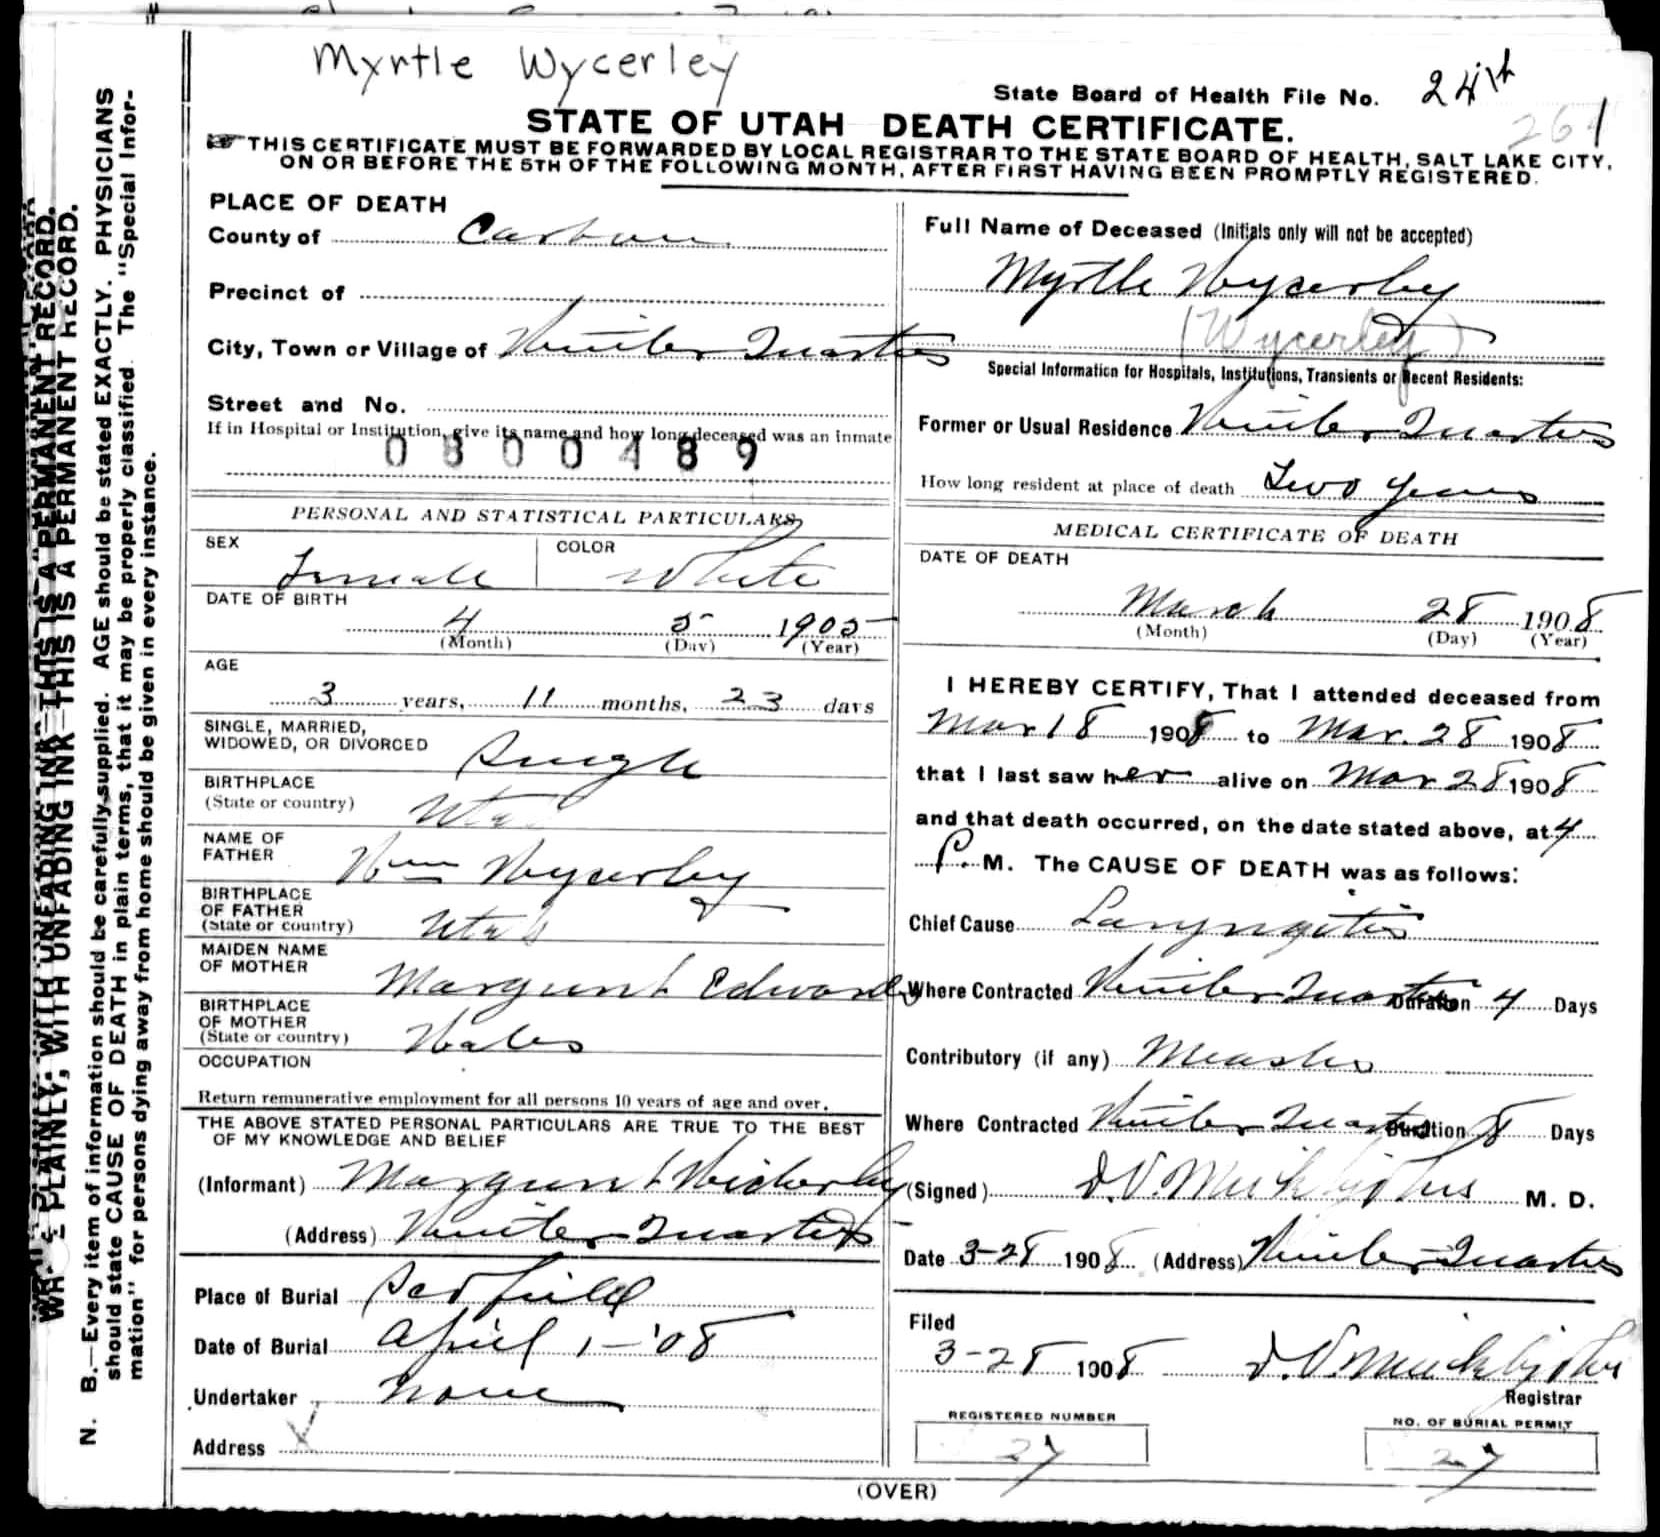 Myrtle Wycerley
State Board of Health File No. 24
261
STATE OF UTAH DEATH CERTIFICATE.
THIS CERTIFICATE MUST BE FORWARDED BY LOCAL REGISTRAR TO THE STATE BOARD OF HEALTH, SALT LAKE CITY,
ON OR BEFORE THE 5TH OF THE FOLLOWING MONTH, AFTER FIRST HAVING BEEN PROMPTLY REGISTERED.
WRITE PLAINLY, WITH UNFADING INK—THIS IS A PERMANENT RECORD.
N. B.—Every item of information should be carefully supplied. AGE should be stated EXACTLY. PHYSICIANS
should state CAUSE OF DEATH in plain terms, that it may be properly classified. The "Special Infor-
mation" for persons dying away from home should be given in every instance.
PLACE OF DEATH
County of Carbon
Precinct of
City, Town or Village of Winter Quarters
Street and No.
If in Hospital or Institution, give its name and how long deceased was an inmate
0800489
PERSONAL AND STATISTICAL PARTICULARS
SEX Female
COLOR White
DATE OF BIRTH
4 5 1905
(Month) (Day) (Year)
AGE
3 years, 11 months, 23 days
SINGLE, MARRIED,
WIDOWED, OR DIVORCED Single
BIRTHPLACE
(State or country) Utah
NAME OF
FATHER Wm Wycerley
BIRTHPLACE
OF FATHER
(State or country) Utah
MAIDEN NAME
OF MOTHER Margaret Edwards
BIRTHPLACE
OF MOTHER
(State or country) Wales
OCCUPATION
Return remunerative employment for all persons 10 years of age and over.
THE ABOVE STATED PERSONAL PARTICULARS ARE TRUE TO THE BEST
OF MY KNOWLEDGE AND BELIEF
(Informant) Margaret Wicherley
(Address) Winter Quarters
Place of Burial Scofield
Date of Burial April 1-'08
Undertaker None
Address
Full Name of Deceased (Initials only will not be accepted)
Myrtle Wycerley
(Wycerley)
Special Information for Hospitals, Institutions, Transients or Recent Residents:
Former or Usual Residence Winter Quarters
How long resident at place of death Two years
MEDICAL CERTIFICATE OF DEATH
DATE OF DEATH
March 28 1908
(Month) (Day) (Year)
I HEREBY CERTIFY, That I attended deceased from
Mar 18 1908 to Mar. 28 1908
that I last saw her alive on Mar 28 1908
and that death occurred, on the date stated above, at 4
P. M. The CAUSE OF DEATH was as follows:
Chief Cause Laryngitis
Where Contracted Winter Quarters Duration 4 Days
Contributory (if any) Measles
Where Contracted Winter Quarters Duration 8 Days
(Signed) M. D.
Date 3-28 1908 (Address) Winter Quarters
Filed
3-28 1908
Registrar
REGISTERED NUMBER
27
NO. OF BURIAL PERMIT
27
(OVER)